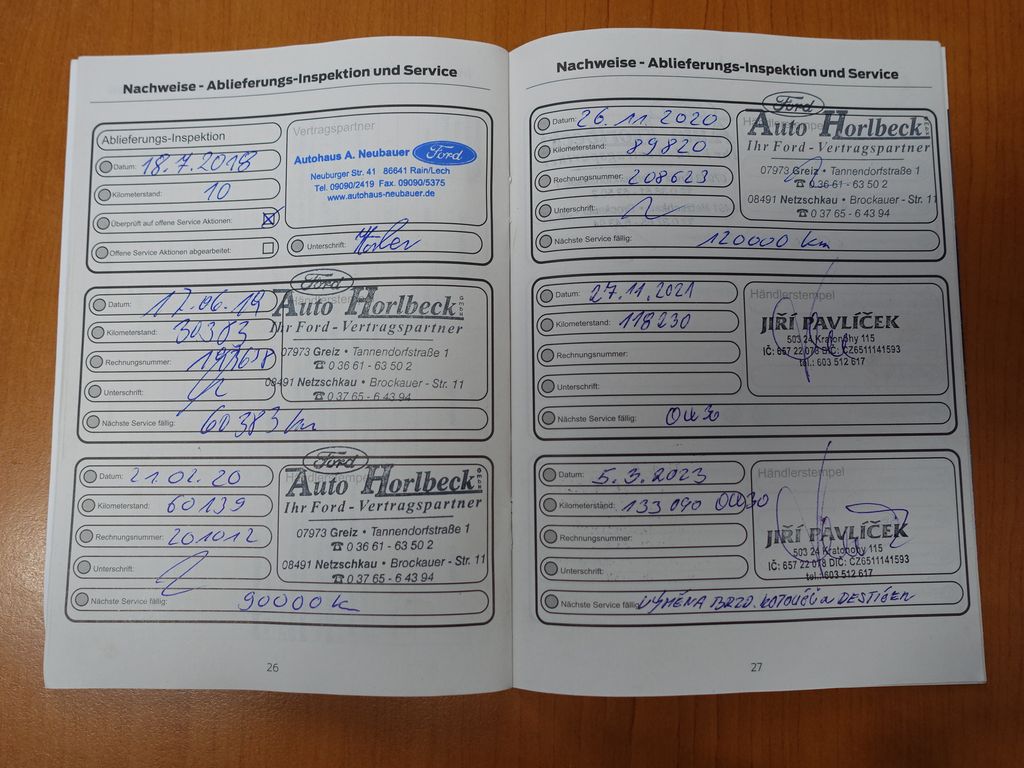 Nachweise - Ablieferungs-Inspektion und Service
Ablieferungs-Inspektion
Datum: 18.7.2018
Kilometerstand: 10
Überprüft auf offene Service Aktionen: ☒
Offene Service Aktionen abgearbeitet: ☐
Vertragspartner
Autohaus A. Neubauer Ford
Neuburger Str. 41 86641 Rain/Lech
Tel. 09090/2419 Fax. 09090/5375
www.autohaus-neubauer.de
Unterschrift:
Datum: 17.06.19
Kilometerstand: 30383
Rechnungsnummer:
Unterschrift:
Nächste Service fällig: 60383 km
Händlerstempel
Ford
Auto Horlbeck GmbH
Ihr Ford - Vertragspartner
07973 Greiz • Tannendorfstraße 1
☎ 0 36 61 - 63 50 2
08491 Netzschkau • Brockauer - Str. 11
☎ 0 37 65 - 6 43 94
Datum: 21.02.20
Kilometerstand: 60139
Rechnungsnummer: 201012
Unterschrift:
Nächste Service fällig: 90000 k
Händlerstempel
Ford
Auto Horlbeck GmbH
Ihr Ford - Vertragspartner
07973 Greiz • Tannendorfstraße 1
☎ 0 36 61 - 63 50 2
08491 Netzschkau • Brockauer - Str. 11
☎ 0 37 65 - 6 43 94
26
Nachweise - Ablieferungs-Inspektion und Service
Datum: 26.11.2020
Kilometerstand: 89820
Rechnungsnummer: 208623
Unterschrift:
Nächste Service fällig: 120000 km
Händlerstempel
Ford
Auto Horlbeck GmbH
Ihr Ford - Vertragspartner
07973 Greiz • Tannendorfstraße 1
☎ 0 36 61 - 63 50 2
08491 Netzschkau • Brockauer - Str. 11
☎ 0 37 65 - 6 43 94
Datum: 27.11.2021
Kilometerstand: 118230
Rechnungsnummer:
Unterschrift:
Nächste Service fällig: 0W30
Händlerstempel
JIŘÍ PAVLÍČEK
503 24 Kratonohy 115
IČ: 657 22 078 DIČ: CZ6511141593
tel.: 603 512 617
Datum: 5.3.2023
Kilometerstand: 133 090 0W30
Rechnungsnummer:
Unterschrift:
Nächste Service fällig: VÝMĚNA BRZD. KOTOUČŮ A DESTIČEK
Händlerstempel
JIŘÍ PAVLÍČEK
503 24 Kratonohy 115
IČ: 657 22 078 DIČ: CZ6511141593
tel.: 603 512 617
27